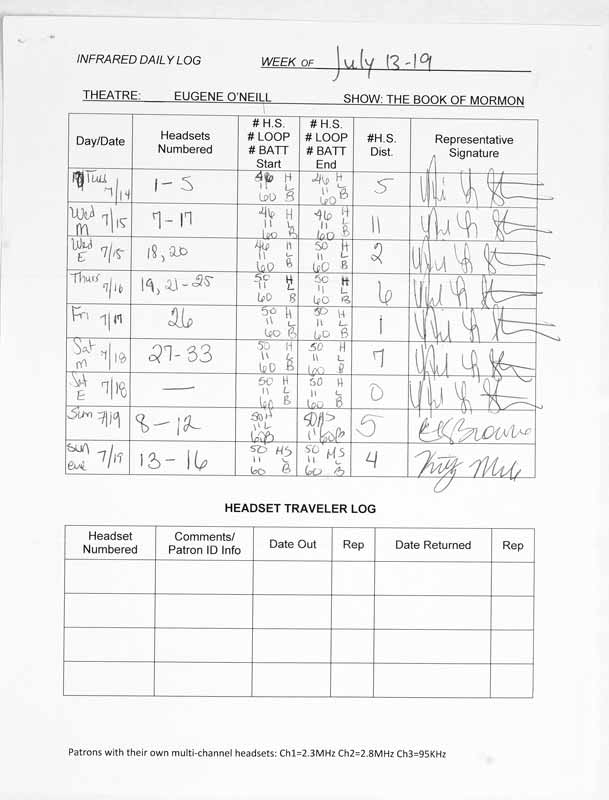 INFRARED DAILY LOG WEEK OF July 13-19
THEATRE: EUGENE O'NEILL SHOW: THE BOOK OF MORMON
Day/Date Headsets Numbered # H.S. # LOOP # BATT Start # H.S. # LOOP # BATT End #H.S. Dist. Representative Signature
Tues 7/14 1-5 46 H 11 L 60 B 46 H 11 L 60 B 5
Wed M 7/15 7-17 46 H 11 L 60 B 46 H 11 L 60 B 11
Wed E 7/15 18, 20 46 H 11 L 60 B 50 H 11 L 60 B 2
Thurs 7/16 19, 21-25 50 H 11 L 60 B 50 H 11 L 60 B 6
Fri 7/17 26 50 H 11 L 60 B 50 H 11 L 60 B 1
Sat M 7/18 27-33 50 H 11 L 60 B 50 H 11 L 60 B 7
Sat E 7/18 — 50 H 11 L 60 B 50 H 11 L 60 B 0
Sun 7/19 8-12 50 H 11 L 60 B 50 HS 11 L 60 B 5 Browne
Sun eve 7/19 13-16 50 HS 11 L 60 B 50 HS 11 L 60 B 4
HEADSET TRAVELER LOG
Headset Numbered Comments/ Patron ID Info Date Out Rep Date Returned Rep
Patrons with their own multi-channel headsets: Ch1=2.3MHz Ch2=2.8MHz Ch3=95KHz